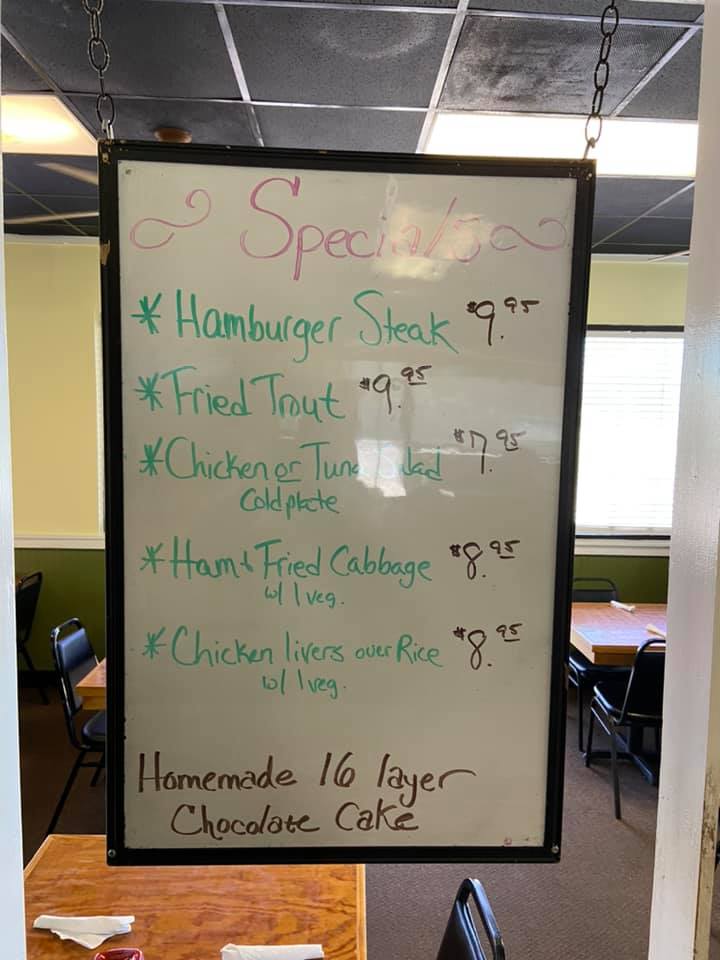 Specials
* Hamburger Steak $9.95
* Fried Trout $9.95
* Chicken or Tuna Salad $7.95
Cold plate
* Ham & Fried Cabbage $8.95
w/ 1 veg.
* Chicken livers over Rice $8.95
w/ 1 veg.
Homemade 16 layer
Chocolate Cake